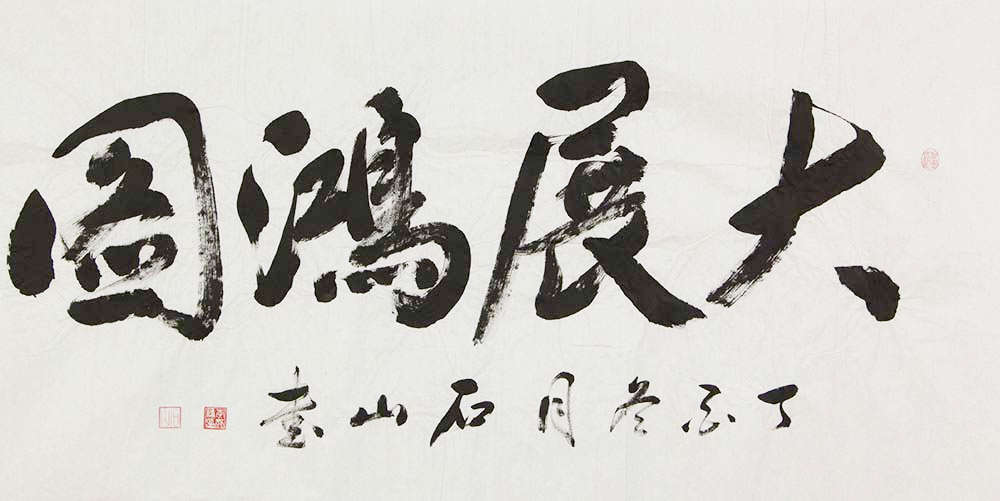 大展鴻圖
丁酉冬月石山書